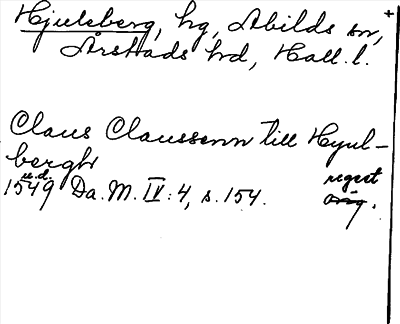 Hjulsberg, hg, Abilds sn,
Årstads hd, Hall. l.
Claus Claussenn till Hyul-
bergh
u.d. regest
1549 Da. M. IV: 4, s. 154. orig.